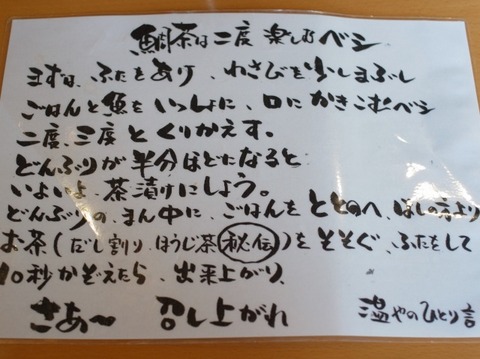 鯛茶は二度楽しむベシ
まずは、ふたをあけ、わさびを少しまぶし
ごはんと魚をいっしょに、口にかきこむベシ
二度、三度とくりかえす。
どんぶりが半分ほどになると
いよいよ、茶漬けにしよう。
どんぶりの、まん中に、ごはんをととのへ、はしの方より
お茶(だし割り、ほうじ茶 秘伝)をそそぐ、ふたをして
10秒かぞえたら、出来上がり、
さあ〜 召し上がれ 温やのひとり言